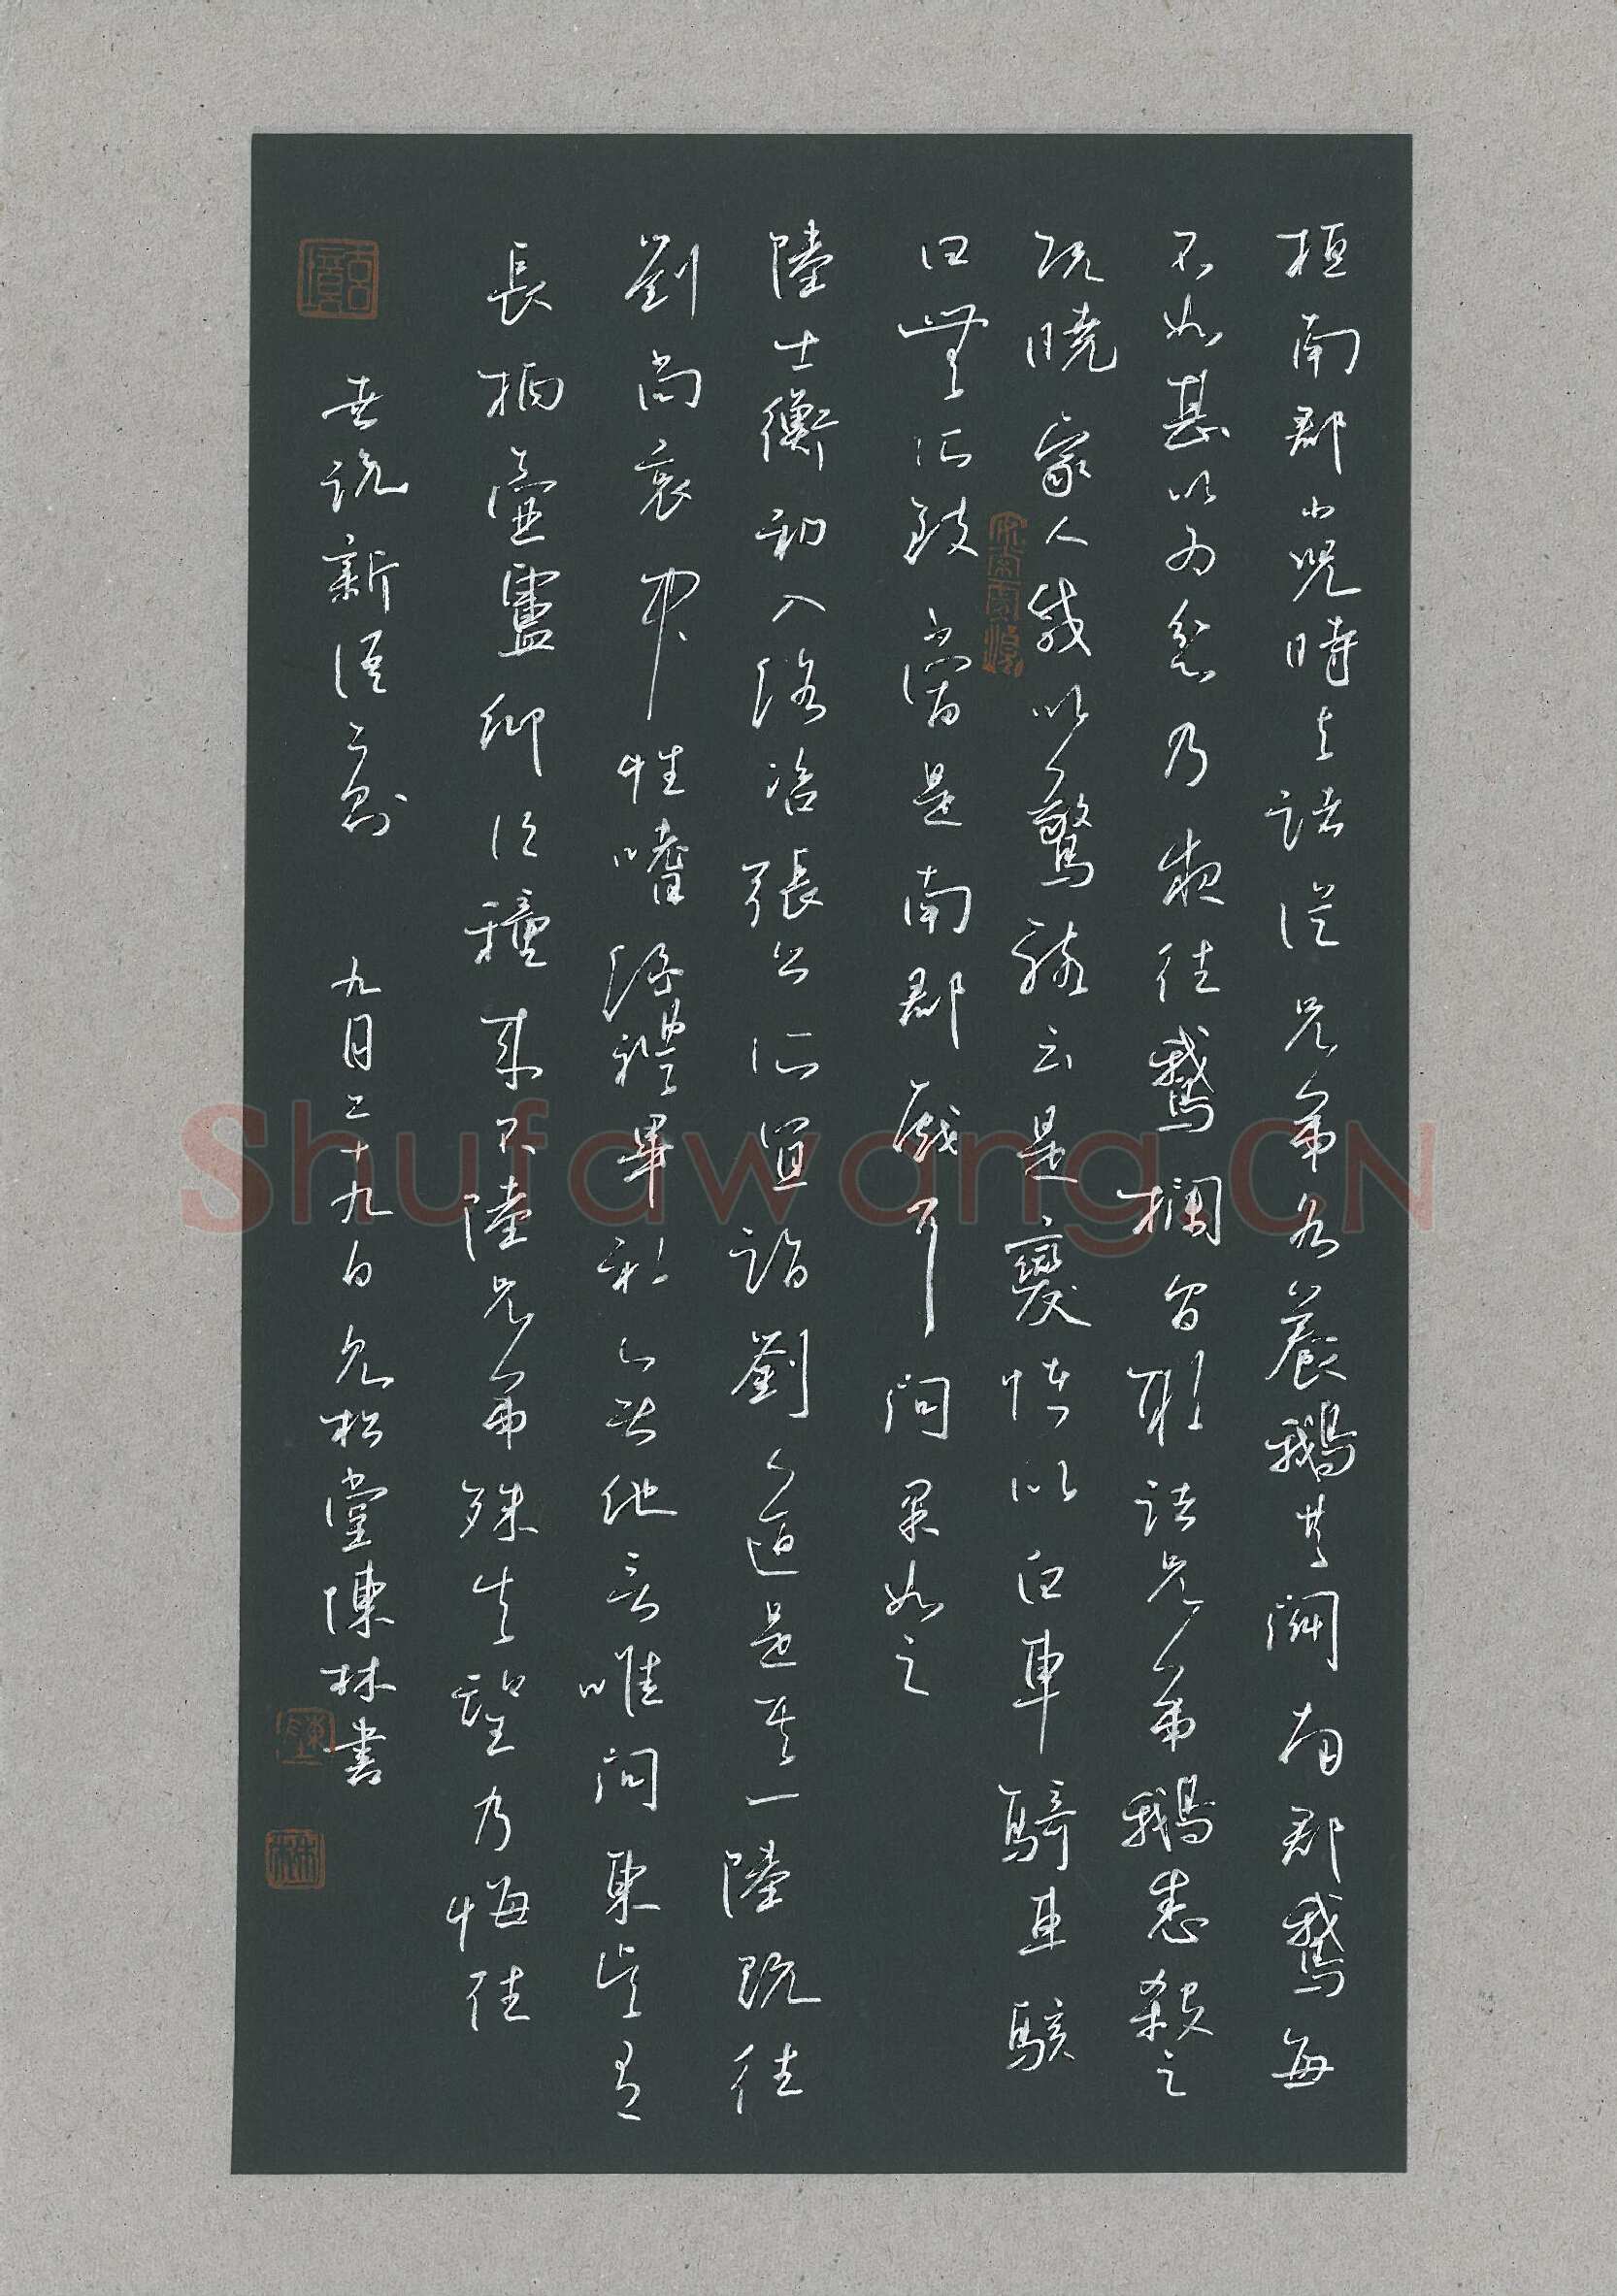 桓南郡小児時与諸從兄弟各養鵝共鬪南郡鵞每
不如甚以為忿乃夜往鵞欄間取諸兄弟鵝悉殺之
既曉家人咸以驚駭云是變怪以白車騎車騎
曰無所致當是南郡戲耳問果如之
陸士衡初入洛咨張公所宜詣劉道是其一陸既往
劉尚哀中性嗜酒禮畢初無他言唯問東吳有
長柄壺盧卿得種來不陸兄弟殊失望乃悔往
世説新語二則 九月二十九日見松堂陳林書
Shufawang.CN